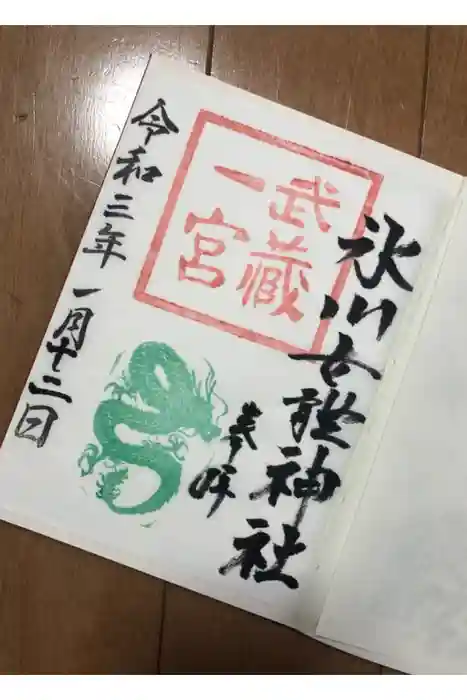 奉拝
氷川女體神社
武蔵
一宮
令和三年 一月十三日